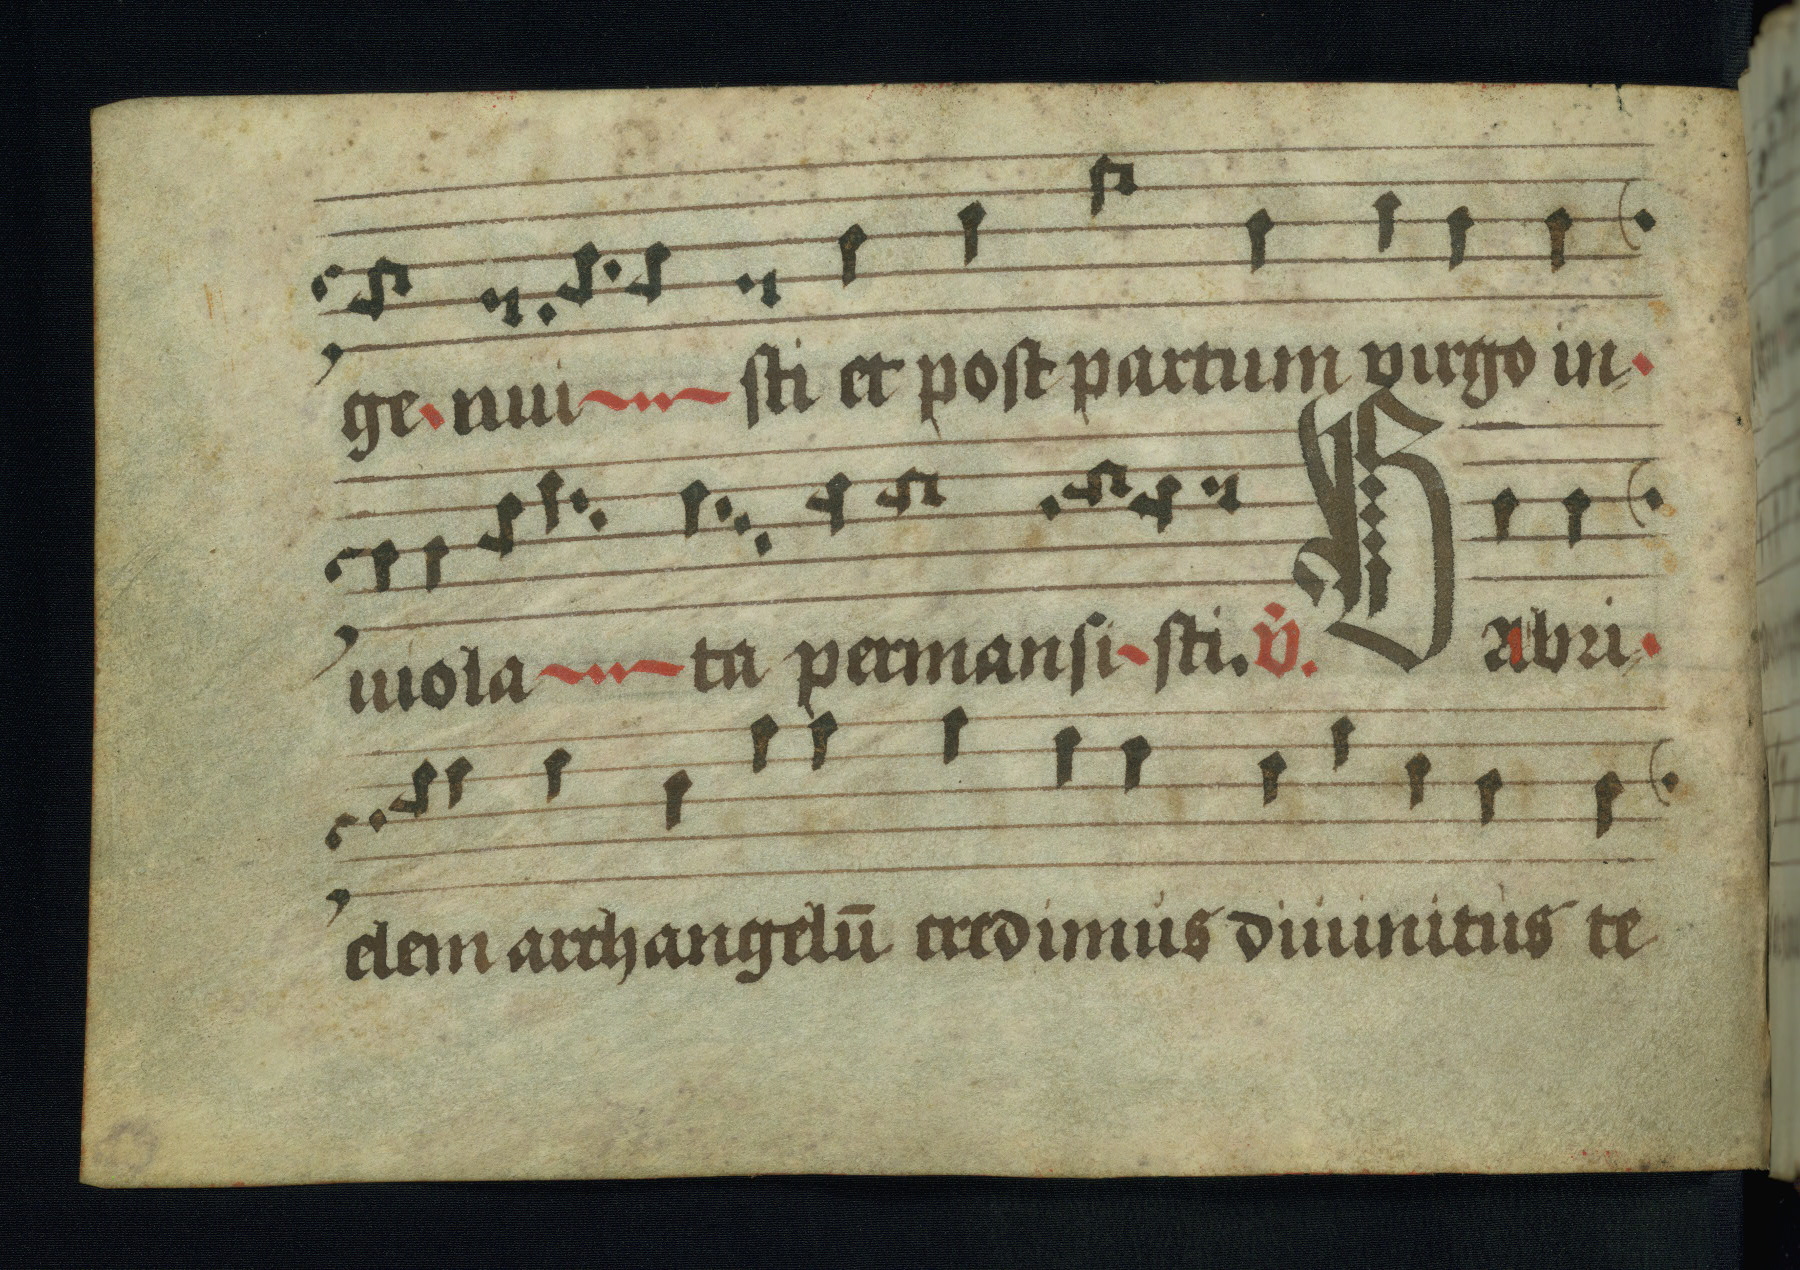 ge nui sti et post partum virgo in
uiola ta permansi sti. v̊. Gabri
elem archangelū credimus diuinitus te